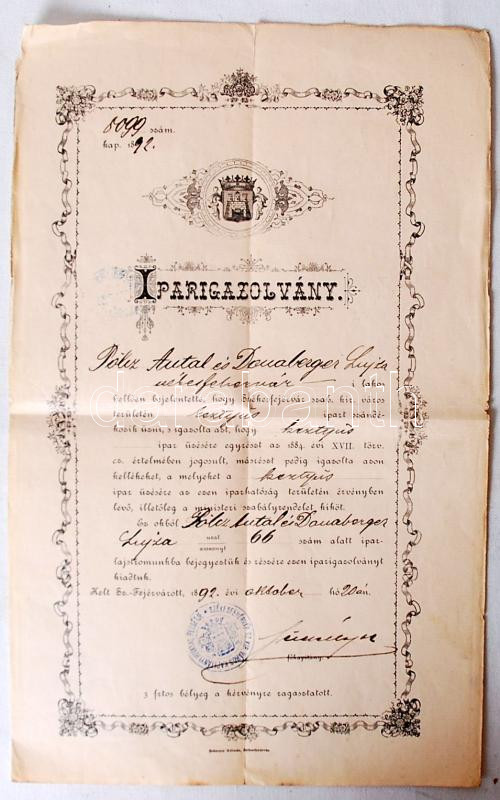 8099 szám.
kap. 1892.
IPARIGAZOLVÁNY.
Pölcz Antal és Donaberger Lujza
székesfehérvár i lakos
kellően bejelentette, hogy Székesfejérvár szab. kir. város
területén kesztyüs ipart szándé-
kozik üzni, s igazolta azt, hogy kesztyüs
ipar üzésére egyrészt az 1884. évi XVII. törv.
cz. értelmében jogosult, másrészt pedig igazolta azon
kellékeket, a melyeket a kesztyüs
ipar üzésére az ezen iparhatóság területén érvényben
levő, illetőleg a ministeri szabályrendelet kiköt.
Ez okból Pölcz Antal és Donaberger
Lujza urat 66 szám alatt ipar-
asszonyt
lajstromunkba bejegyeztük és részére ezen iparigazolványt
kiadtuk.
Kelt Sz.-Fejérvárott, 1892. évi oktober hó 20án.
főkapitány.
3 frtos bélyeg a kérvényre ragasztatott.